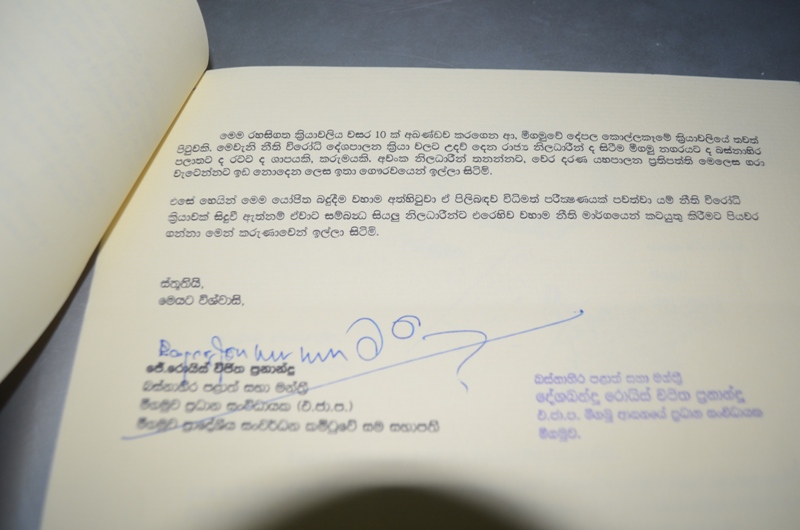 මෙම රහසිගත ක්‍රියාවලිය වසර 10 ක් අඛණ්ඩව කරගෙන ආ, මීගමුවේ දේපල කොල්ලකෑමේ ක්‍රියාවලියේ තවත්
පිටුවකි. මෙවැනි නීති විරෝධී දේශපාලන ක්‍රියා වලට උදව් දෙන රාජ්‍ය නිලධාරීන් ද සිටීම මීගමු නගරයට ද බස්නාහිර
පලාතට ද රටට ද ශාපයකි, කරුමයකි. අවංක නිලධාරීන් තනන්නට, වෙර දරණ යහපාලන ප්‍රතිපත්ති මෙලෙස ගරා
වැටෙන්නට ඉඩ නොදෙන ලෙස ඉතා ගෞරවයෙන් ඉල්ලා සිටිමි.
එසේ හෙයින් මෙම යෝජිත බදුදීම වහාම අත්හිටුවා ඒ පිලිබඳව විධිමත් පරීක්ෂණයක් පවත්වා යම් නීති විරෝධී
ක්‍රියාවක් සිදුවී ඇත්නම් ඒවාට සම්බන්ධ සියලු නිලධාරීන්ට එරෙහිව වහාම නීති මාර්ගයෙන් කටයුතු කිරීමට පියවර
ගන්නා මෙන් කරුණාවෙන් ඉල්ලා සිටිමි.
ස්තූතියි,
මෙයට විශ්වාසි,
ජේ.රොයිස් විජිත ප්‍රනාන්දු
බස්නාහිර පළාත් සභා මන්ත්‍රී
මීගමුව ප්‍රධාන සංවිධායක (එ.ජා.ප.)
මීගමුව ප්‍රාදේශීය සංවර්ධන කමිටුවේ සම සභාපති
බස්නාහිර පළාත් සභා මන්ත්‍රී
දේශබන්දු රොයිස් විජිත ප්‍රනාන්දු
එ.ජා.ප. මීගමු ආසනයේ ප්‍රධාන සංවිධායක
මීගමුව.